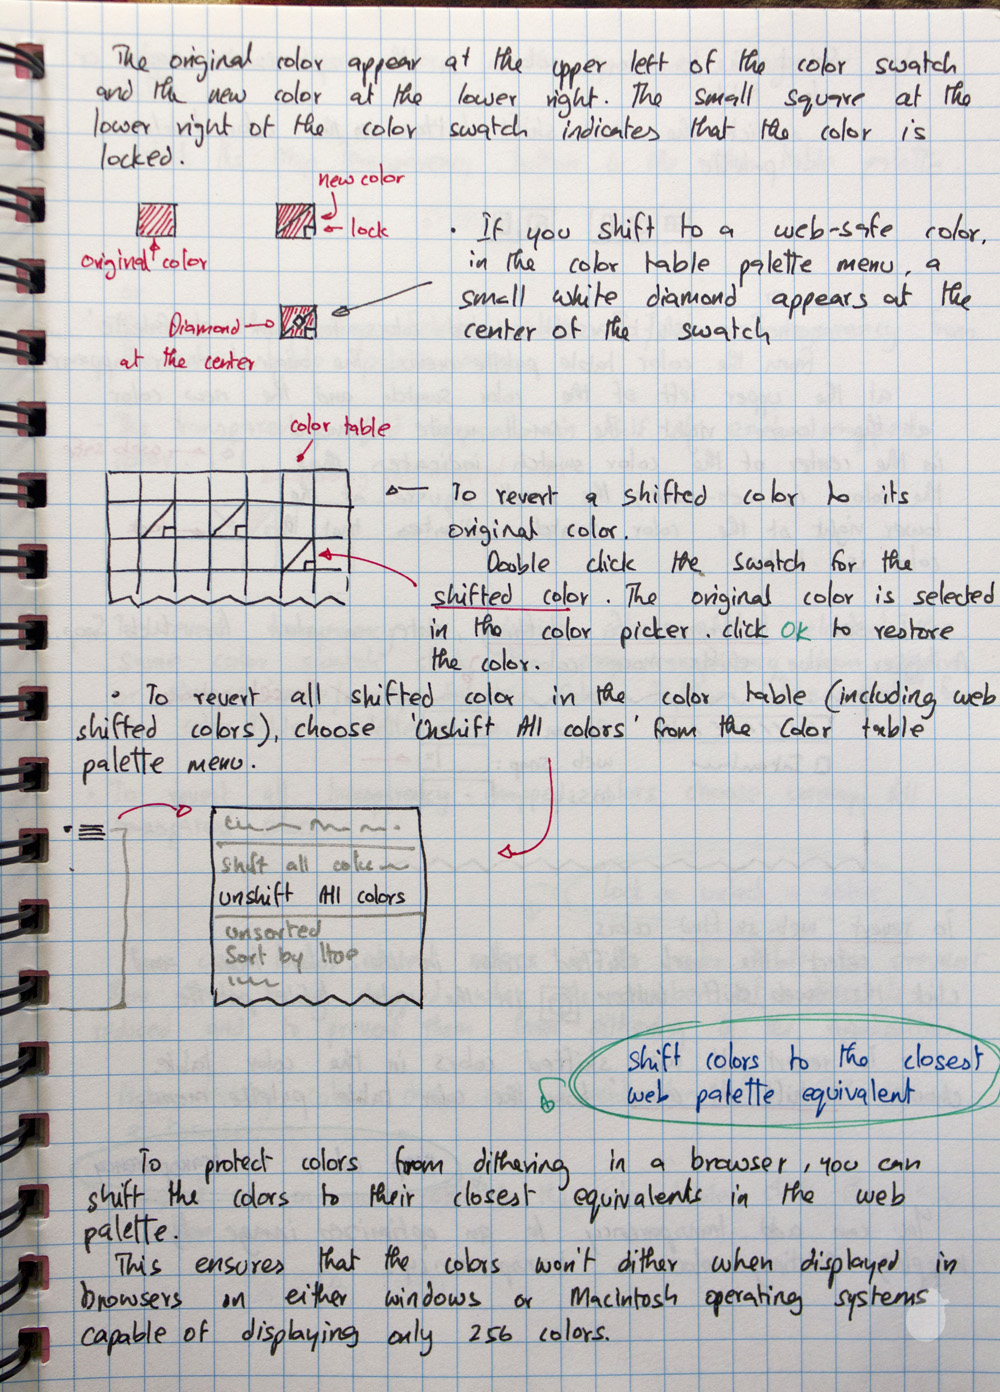 The original color appear at the upper left of the color swatch
and the new color at the lower right. The small square at the
lower right of the color swatch indicates that the color is
locked.
new color
lock
original color
· If you shift to a web-safe color,
in the color table palette menu, a
small white diamond appears at the
center of the swatch
Diamond
at the center
color table
To revert a shifted color to its
original color.
Double click the swatch for the
shifted color. The original color is selected
in the color picker. click OK to restore
the color.
· To revert all shifted color in the color table (including web
shifted colors), choose 'Unshift All colors' from the Color table
palette menu.
shift all
unshift All colors
unsorted
Sort by Hue
shift colors to the closest
web palette equivalent
To protect colors from dithering in a browser, you can
shift the colors to their closest equivalents in the web
palette.
This ensures that the colors won't dither when displayed in
browsers on either windows or MacIntosh operating systems
capable of displaying only 256 colors.